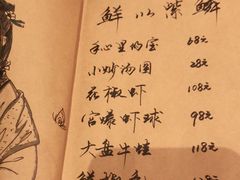 鲜以嘴鳞
手心里的宝 68元
小炒汤圆 28元
花椒虾 108元
宫爆虾球 98元
大盘牛蛙 118元
鲜椒